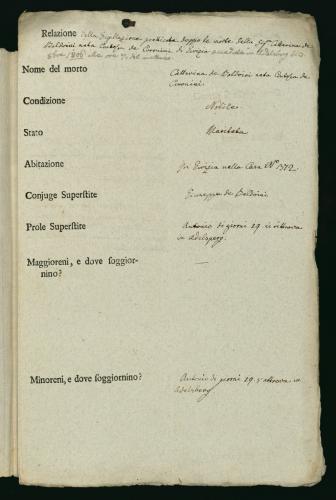 Relazione della Sigilazione praticata doppo la morte della Sig.ra Catterina de
Baldoini nata Contessa de Coronini di Gorizia
1806 alle ore 7
Nome del morto Catterina de Baldoini nata Contessa de
Coronini
Condizione Nobile
Stato Maritata
Abitazione In Gorizia nella Casa N° 1372
Conjuge Superſtite Giuseppe de Baldoini
Prole Superſtite Antonio di giorni 29. si ritrova
in Adelsperg.
Maggioreni, e dove ſoggior- —
nino?
Minoreni, e dove ſoggiornino? Antonio di giorni 29. si ritrova in
Adelsberg